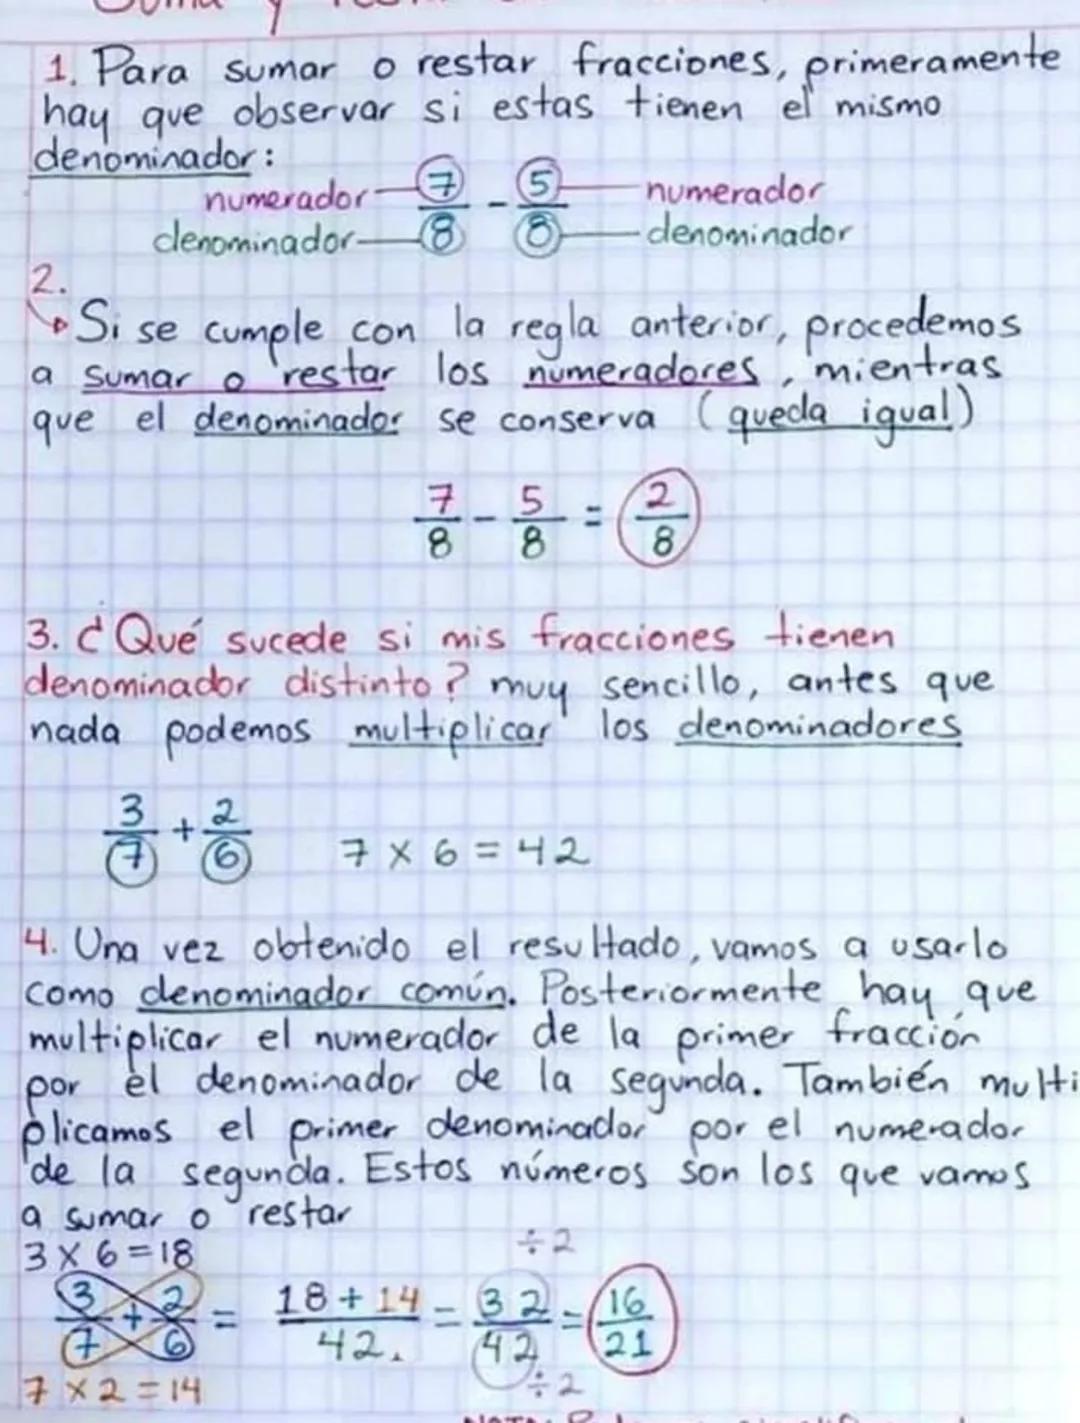 1. Para sumar o restar fracciones, primeramente
hay que observar si estas tienen el mismo
denominador:
numerador 7/8 - 5/8 numerador
denominador denominador
2.
Si se cumple con la regla anterior, procedemos
a sumar o restar los numeradores, mientras
que el denominador se conserva (queda igual)
7/8 - 5/8 = 2/8
3. ¿Qué sucede si mis fracciones tienen
denominador distinto? muy sencillo, antes que
nada podemos multiplicar los denominadores
3/7 + 2/6 7 x 6 = 42
4. Una vez obtenido el resultado, vamos a usarlo
como denominador común. Posteriormente hay que
multiplicar el numerador de la primer fracción
por el denominador de la segunda. También multi
plicamos el primer denominador por el numerador
de la segunda. Estos números son los que vamos
a sumar o restar
3 x 6 = 18 ÷2
3/7 + 2/6 = 18 + 14/42. = 32/42 = 16/21
7 x 2 = 14 ÷2